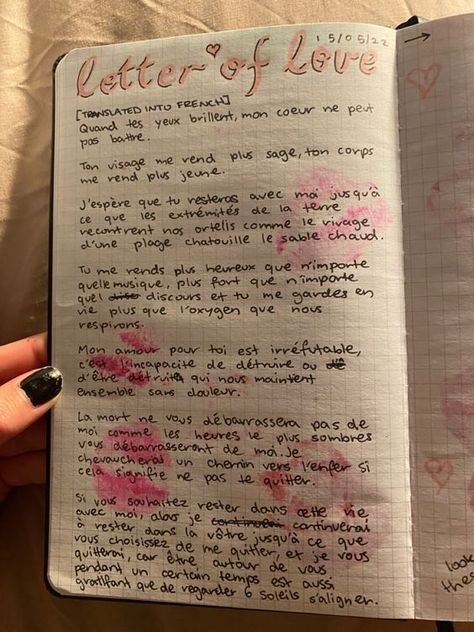 15/05/22
letter of love
[TRANSLATED INTO FRENCH]
Quand tes yeux brillent, mon coeur ne peut
pas battre.
Ton visage me rend plus sage, ton corps
me rend plus jeune.
J'espère que tu resteras avec moi jusqu'à
ce que les extrémités de la terre
recontrent nos orteils comme le rivage
d'une plage chatouille le sable chaud.
Tu me rends plus heureux que n'importe
quelle musique, plus fort que n'importe
quel discours et tu me gardes en
vie plus que l'oxygen que nous
respirons.
Mon amour pour toi est irréfutable,
c'est l'incapacite de détruire ou
d'être détruite qui nous maintent
ensemble sans douleur.
La mort ne vous débarrassera pas de
moi comme les heures le plus sombres
vous débarrasseront de moi. Je
chevaucherai un chemin vers l'enfer si
cela signifie ne pas te quitter.
Si vous souhaitez rester dans cette vie
avec moi, alors je continuerai
à rester dans la vôtre jusqu'à ce que
vous choisissez de me quitter, et je vous
quitterai, car être autour de vous
pendant un certain temps est aussi
gratifant que de regarder 6 soleils s'aligner.
look
thes